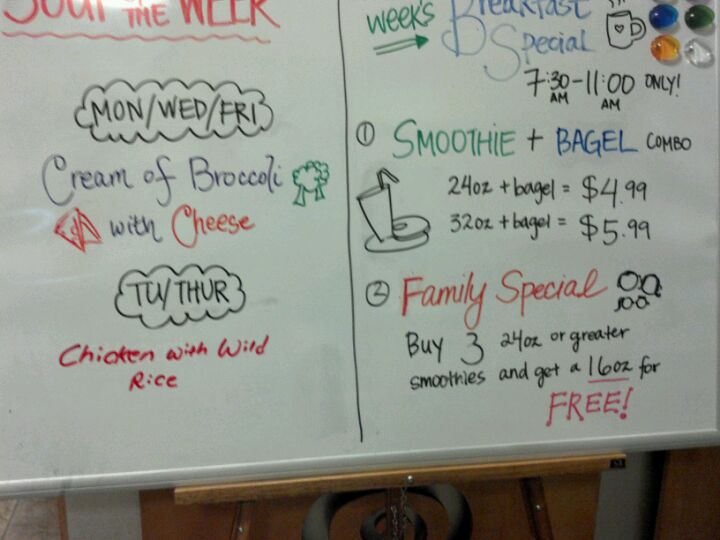 SOUP OF THE WEEK
MON/WED/FRI
Cream of Broccoli
with Cheese
TU/THUR
Chicken with Wild
Rice
WEEK'S Breakfast
Special
7:30-11:00 ONLY!
AM AM
1 SMOOTHIE + BAGEL COMBO
24oz + bagel = $4.99
32oz + bagel = $5.99
2 Family Special
Buy 3 24oz or greater
smoothies and get a 16oz for
FREE!